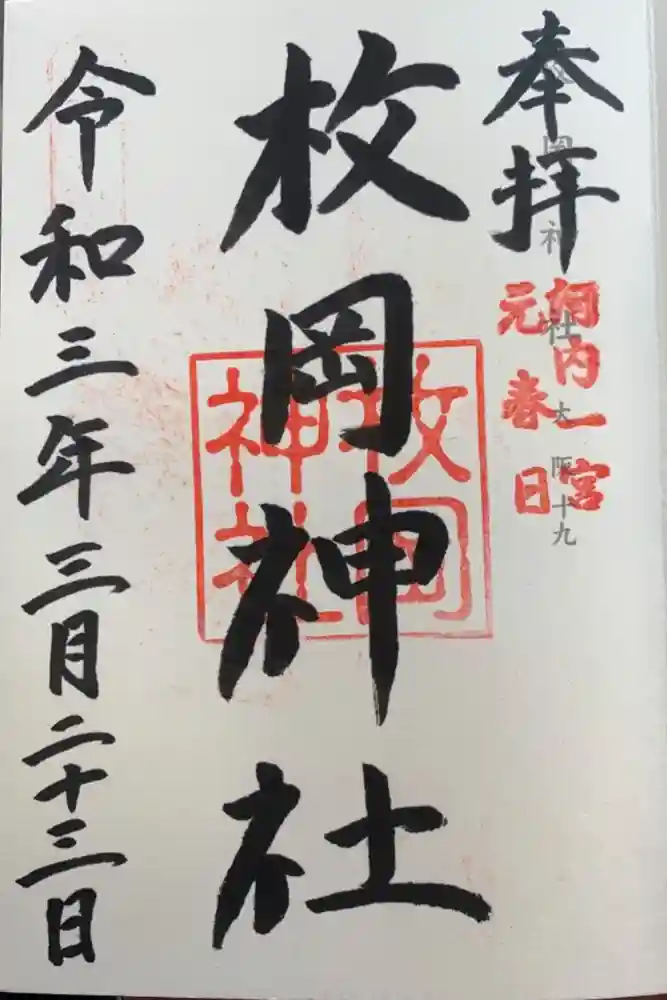 奉拝
枚岡神社 大阪十九
河内一宮
元春日
枚岡神社
枚岡
神社
令和三年三月二十三日